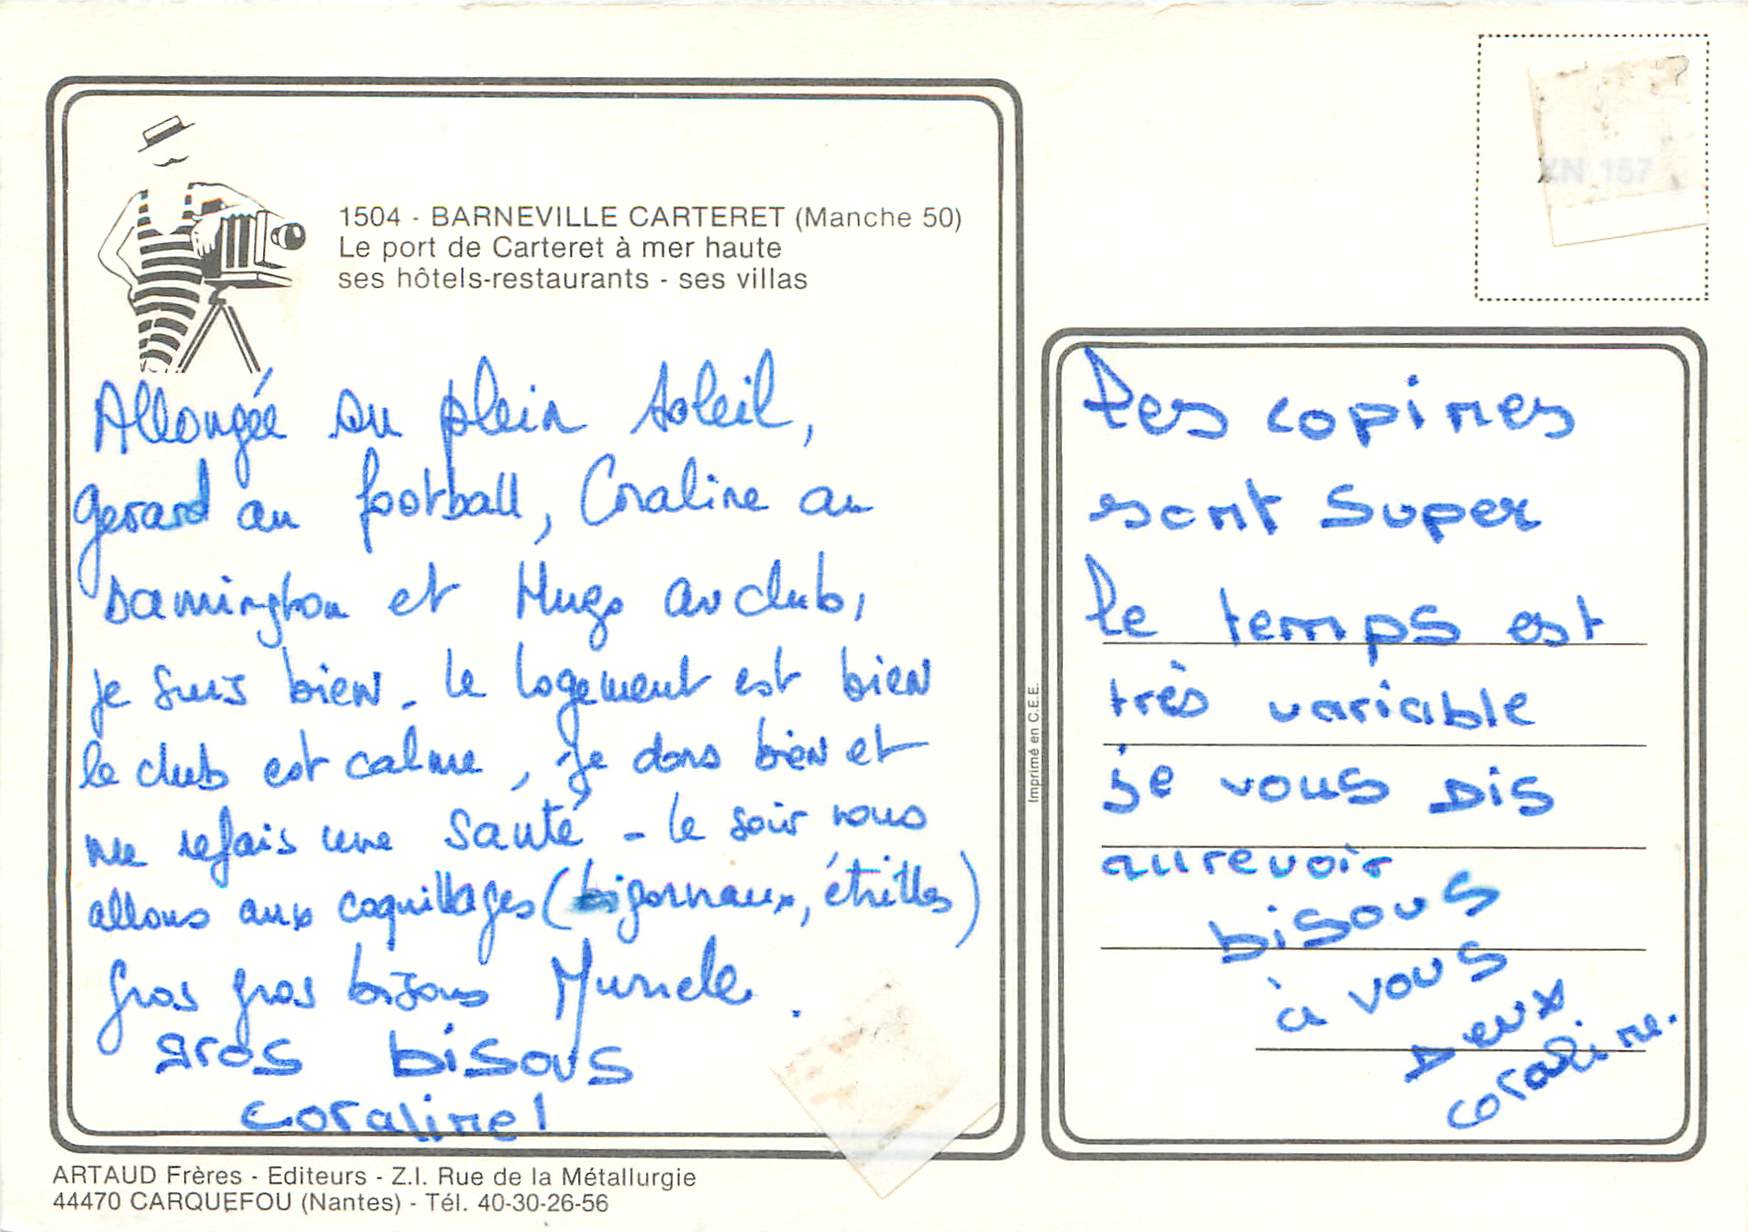 1504 - BARNEVILLE CARTERET (Manche 50)
Le port de Carteret à mer haute
ses hôtels-restaurants - ses villas
Allongée au plein soleil,
Gerard au football, Coraline au
Damington et Hugo au club,
je suis bien - le logement est bien
le club est calme, je dors bien et
me refais une santé - le soir nous
allons aux coquillages (bigornaux, étrilles)
gros gros bisous Muriele.
gros bisous
coraline!
ARTAUD Frères - Editeurs - Z.I. Rue de la Métallurgie
44470 CARQUEFOU (Nantes) - Tél. 40-30-26-56
Imprimé en C.E.E.
XN 157
Les copines
sont super
le temps est
très variable
je vous dis
aurevoir
bisous
à vous
deux
coraline.